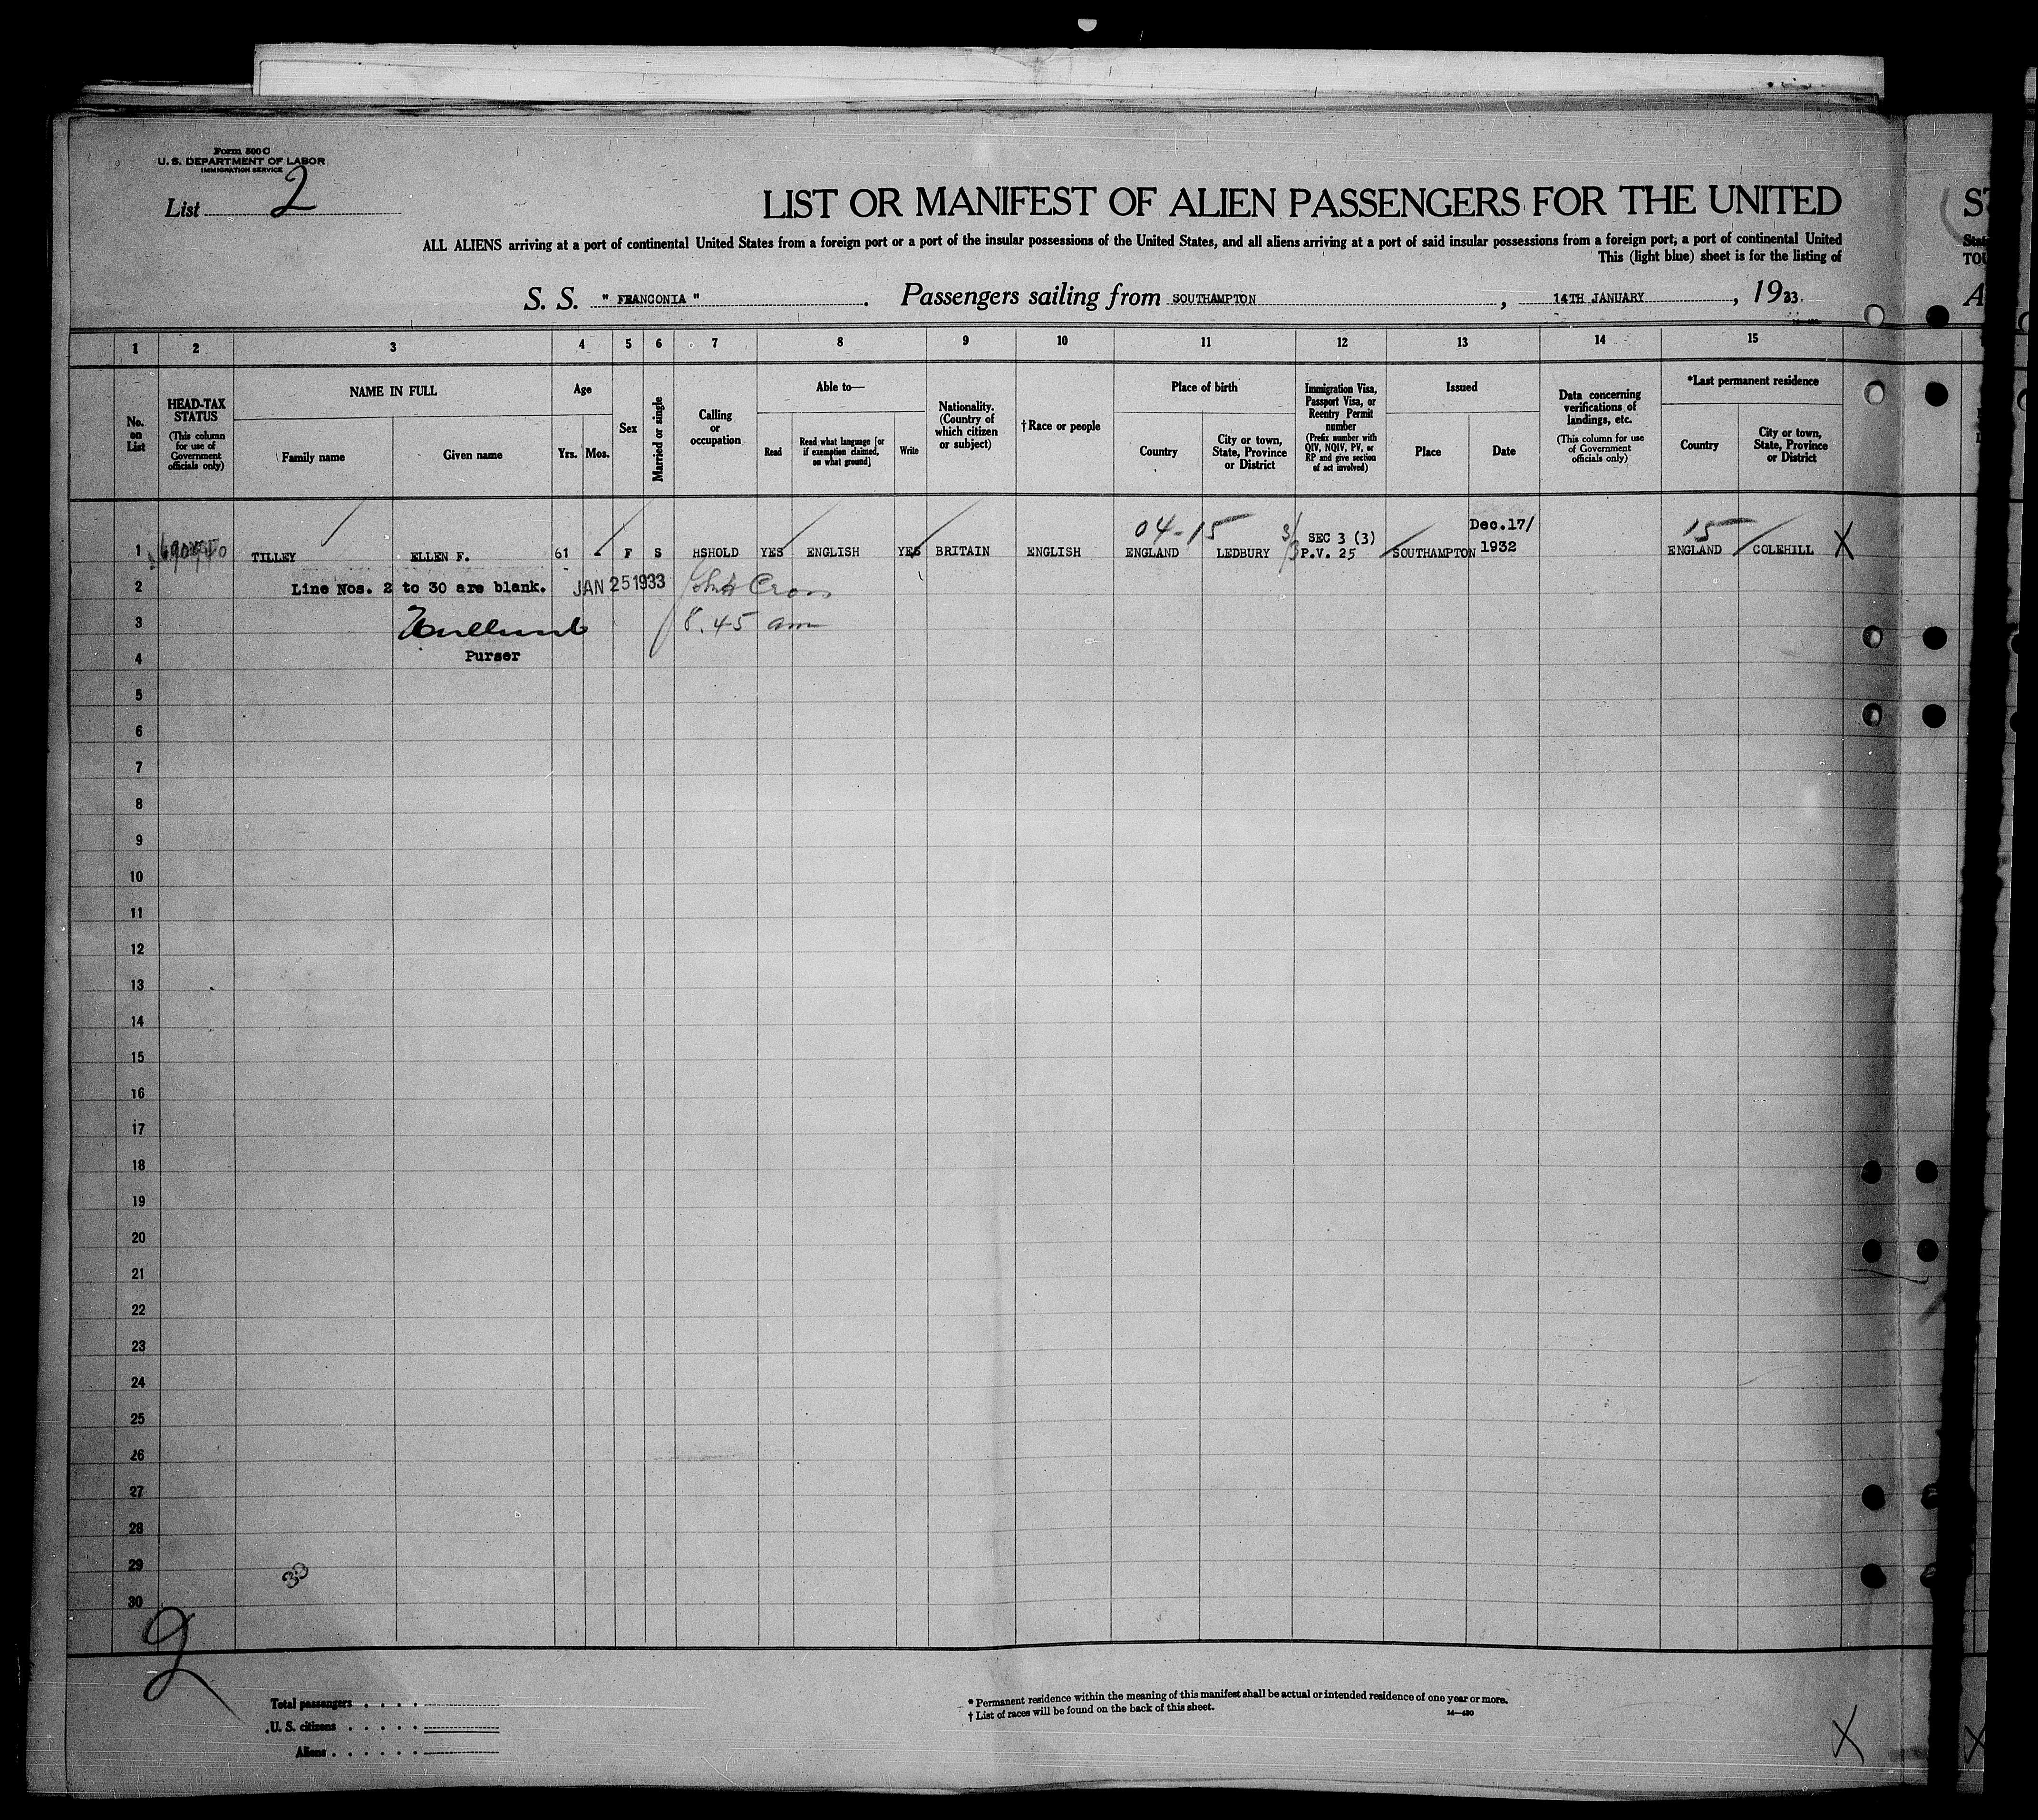 Form 500 C
U. S. DEPARTMENT OF LABOR
IMMIGRATION SERVICE
List 2
LIST OR MANIFEST OF ALIEN PASSENGERS FOR THE UNITED
ALL ALIENS arriving at a port of continental United States from a foreign port or a port of the insular possessions of the United States, and all aliens arriving at a port of said insular possessions from a foreign port, a port of continental United
This (light blue) sheet is for the listing of
S. S. " FRANCONIA " . Passengers sailing from SOUTHAMPTON , 14TH JANUARY , 1933.
1 2 3 4 5 6 7 8 9 10 11 12 13 14 15
No. on List
HEAD-TAX STATUS
(This column for use of Government officials only)
NAME IN FULL
Family name
Given name
Age
Yrs. Mos.
Sex
Married or single
Calling or occupation
Able to—
Read
Read what language [or if exemption claimed, on what ground]
Write
Nationality. (Country of which citizen or subject)
†Race or people
Place of birth
Country
City or town, State, Province or District
Immigration Visa, Passport Visa, or Reentry Permit number
(Prefix number with QIV, NQIV, PV, or RP and give section of act involved)
Issued
Place
Date
Data concerning verifications of landings, etc.
(This column for use of Government officials only)
*Last permanent residence
Country
City or town, State, Province or District
04-15 SEC 3 (3) Dec.17/ 15
1 TILLEY ELLEN F. 61 F S HSHOLD YES ENGLISH YES BRITAIN ENGLISH ENGLAND LEDBURY P.V. 25 SOUTHAMPTON 1932 ENGLAND COLEHILL X
2 Line Nos. 2 to 30 are blank. JAN 25 1933 Cross
3 8.45 am
4 Purser
5
6
7
8
9
10
11
12
13
14
15
16
17
18
19
20
21
22
23
24
25
26
27
28
29
30
33
2
Total passengers
U. S. citizens
Aliens
* Permanent residence within the meaning of this manifest shall be actual or intended residence of one year or more.
† List of races will be found on the back of this sheet.
14—430
X
X